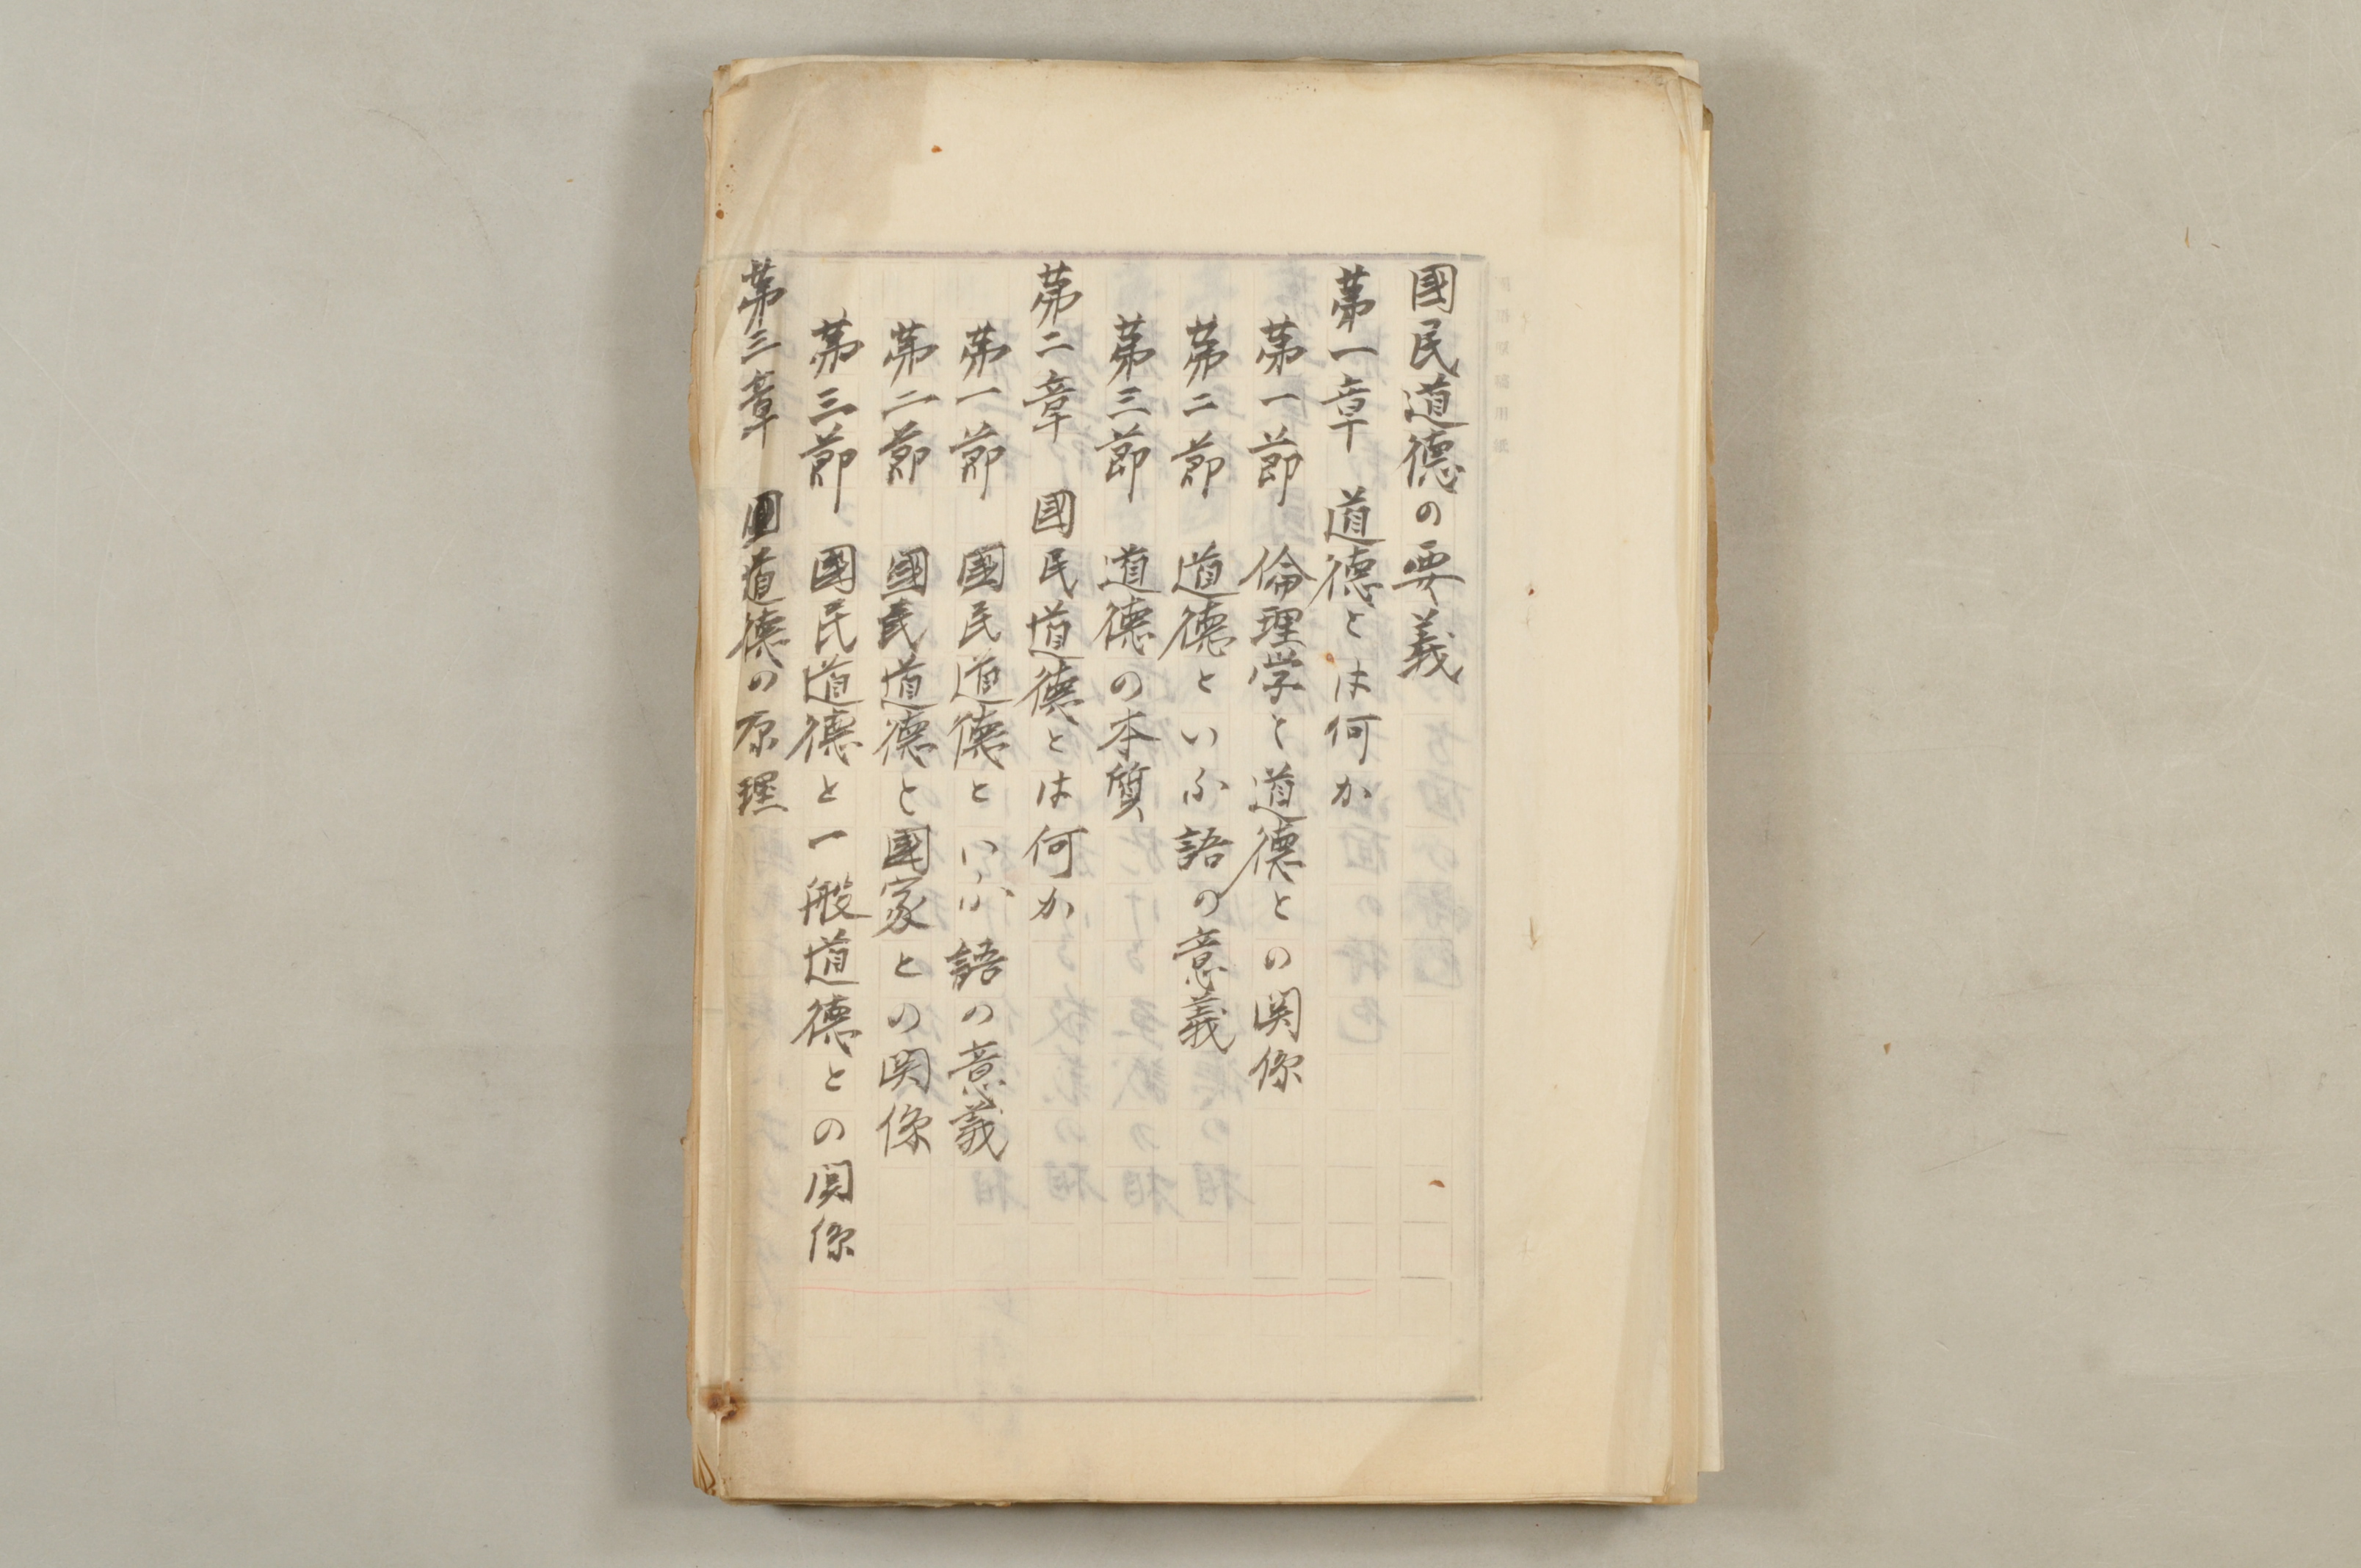 國民道德の要義
第一章 道德とは何か
第一節 倫理学と道德との関係
第二節 道德といふ語の意義
第三節 道德の本質
第二章 國民道德とは何か
第一節 國民道德といふ語の意義
第二節 國民道德と國家との関係
第三節 國民道德と一般道德との関係
第三章 道德の原理